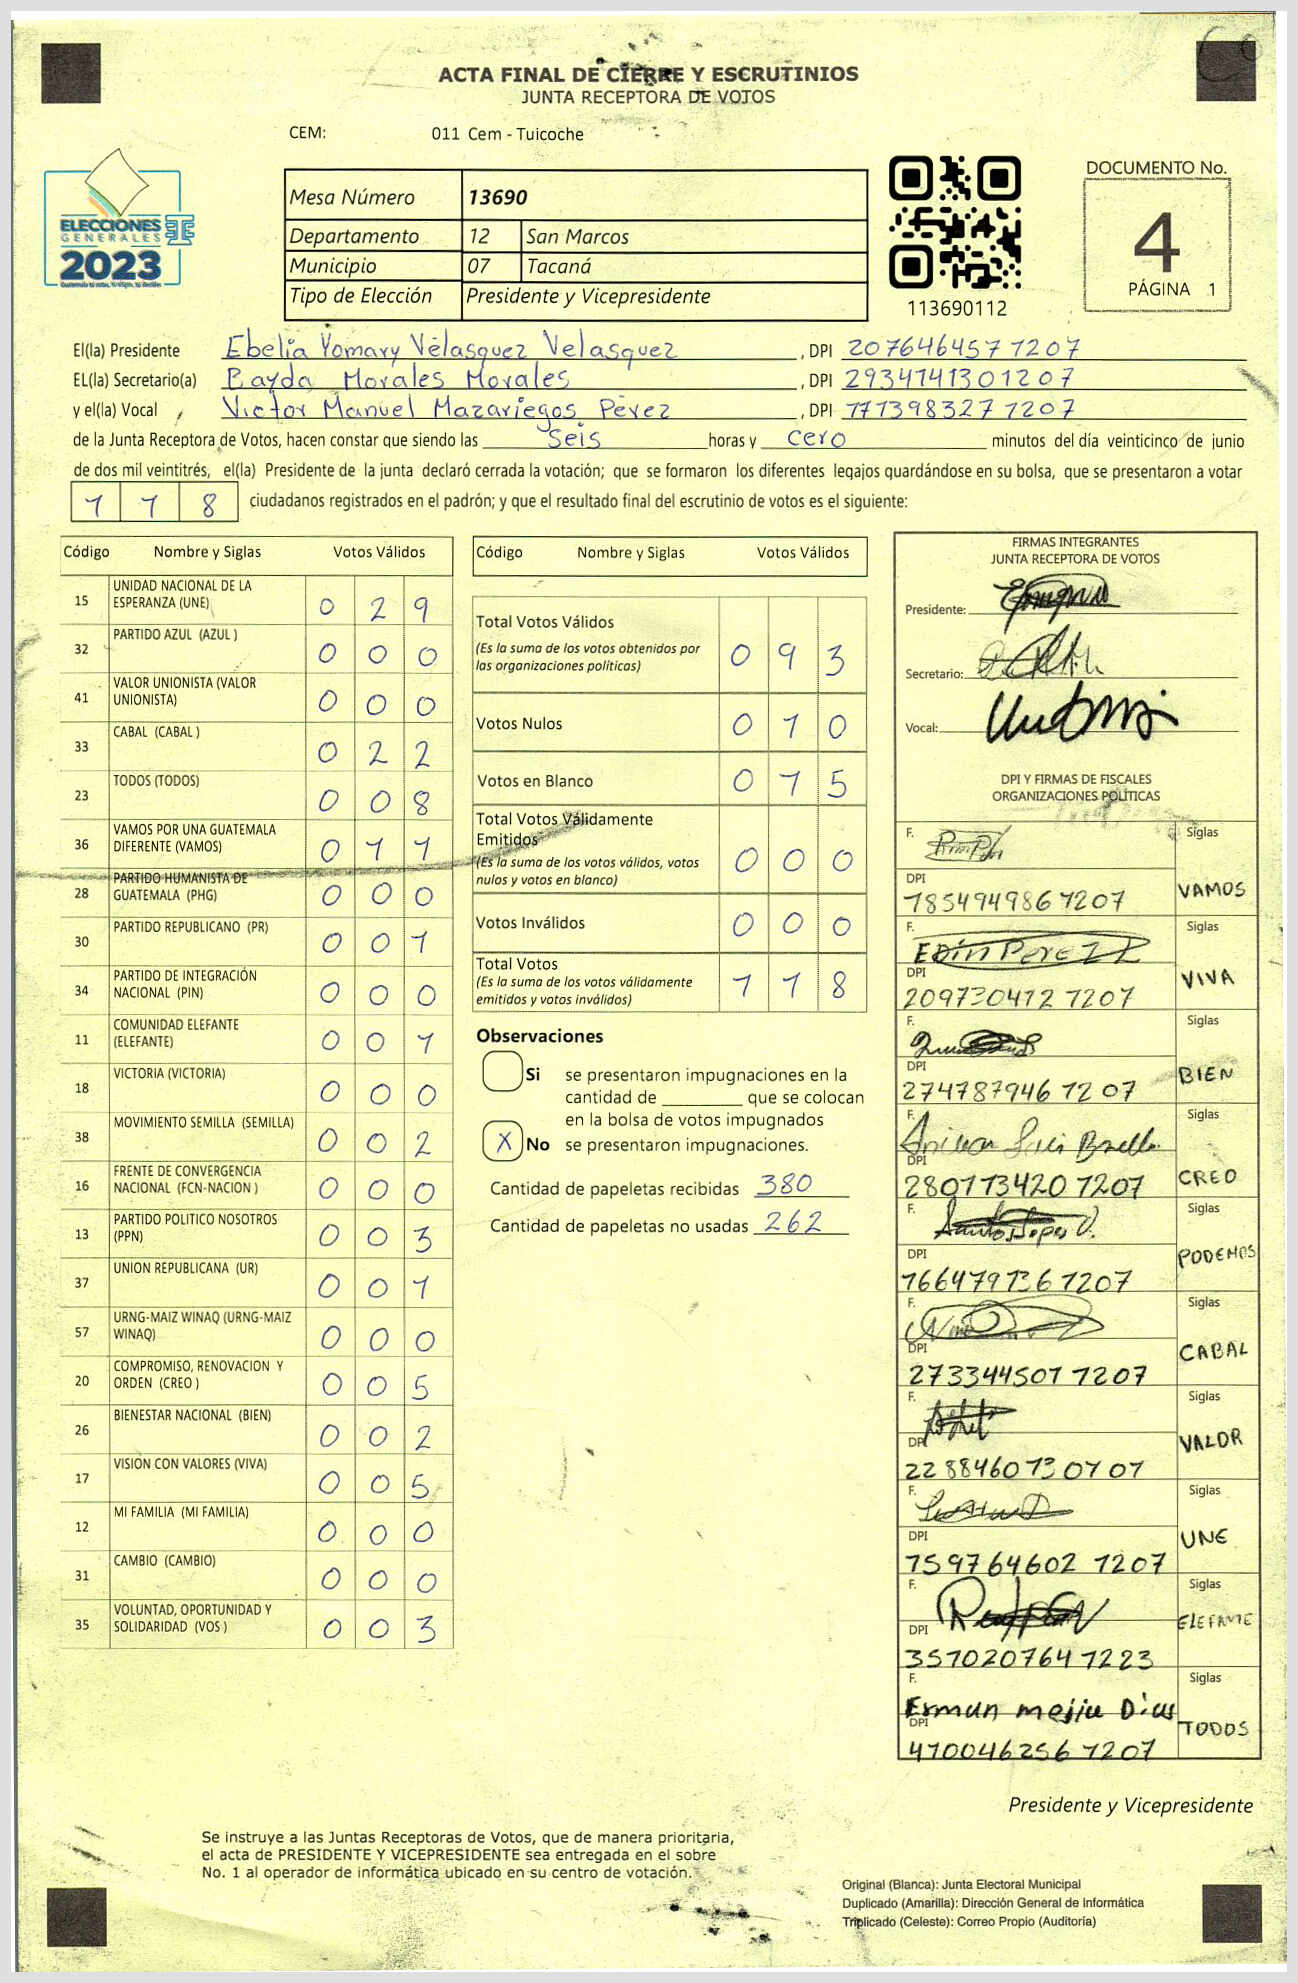 ACTA FINAL DE CIERRE Y ESCRUTINIOS
JUNTA RECEPTORA DE VOTOS
CEM: 011 Cem - Tuicoche
ELECCIONES
GENERALES
2023
Mesa Número 13690
Departamento 12 San Marcos
Municipio 07 Tacaná
Tipo de Elección Presidente y Vicepresidente
113690112
DOCUMENTO No.
4
PÁGINA 1
El(la) Presidente Ebelia Yomary Vélasquez Velasquez, DPI 207646457 1207
EL(la) Secretario(a) Bayda Morales Morales, DPI 2934141301207
y el(la) Vocal Victor Manuel Mazariegos Pérez, DPI 171398327 1207
de la Junta Receptora de Votos, hacen constar que siendo las seis horas y cero minutos del día veinticinco de junio
de dos mil veintitrés, el(la) Presidente de la junta declaró cerrada la votación; que se formaron los diferentes legajos quardándose en su bolsa, que se presentaron a votar
1 1 8 ciudadanos registrados en el padrón; y que el resultado final del escrutinio de votos es el siguiente:
Código Nombre y Siglas Votos Válidos
15 UNIDAD NACIONAL DE LA ESPERANZA (UNE) 0 2 9
32 PARTIDO AZUL (AZUL ) 0 0 0
41 VALOR UNIONISTA (VALOR UNIONISTA) 0 0 0
33 CABAL (CABAL ) 0 2 2
23 TODOS (TODOS) 0 0 8
36 VAMOS POR UNA GUATEMALA DIFERENTE (VAMOS) 0 1 1
28 PARTIDO HUMANISTA DE GUATEMALA (PHG) 0 0 0
30 PARTIDO REPUBLICANO (PR) 0 0 1
34 PARTIDO DE INTEGRACIÓN NACIONAL (PIN) 0 0 0
11 COMUNIDAD ELEFANTE (ELEFANTE) 0 0 1
18 VICTORIA (VICTORIA) 0 0 0
38 MOVIMIENTO SEMILLA (SEMILLA) 0 0 2
16 FRENTE DE CONVERGENCIA NACIONAL (FCN-NACION ) 0 0 0
13 PARTIDO POLITICO NOSOTROS (PPN) 0 0 3
37 UNION REPUBLICANA (UR) 0 0 1
57 URNG-MAIZ WINAQ (URNG-MAIZ WINAQ) 0 0 0
20 COMPROMISO, RENOVACION Y ORDEN (CREO ) 0 0 5
26 BIENESTAR NACIONAL (BIEN) 0 0 2
17 VISION CON VALORES (VIVA) 0 0 5
12 MI FAMILIA (MI FAMILIA) 0 0 0
31 CAMBIO (CAMBIO) 0 0 0
35 VOLUNTAD, OPORTUNIDAD Y SOLIDARIDAD (VOS ) 0 0 3
Código Nombre y Siglas Votos Válidos
Total Votos Válidos 0 9 3
(Es la suma de los votos obtenidos por
las organizaciones políticas)
Votos Nulos 0 1 0
Votos en Blanco 0 1 5
Total Votos Válidamente
Emitidos 0 0 0
(Es la suma de los votos válidos, votos
nulos y votos en blanco)
Votos Inválidos 0 0 0
Total Votos 1 1 8
(Es la suma de los votos válidamente
emitidos y votos inválidos)
Observaciones
Si se presentaron impugnaciones en la
cantidad de ________ que se colocan
en la bolsa de votos impugnados
X No se presentaron impugnaciones.
Cantidad de papeletas recibidas 380
Cantidad de papeletas no usadas 262
FIRMAS INTEGRANTES
JUNTA RECEPTORA DE VOTOS
Presidente:
Secretario:
Vocal:
DPI Y FIRMAS DE FISCALES
ORGANIZACIONES POLÍTICAS
F. Siglas
DPI VAMOS
185494986 1207
F. Edin Perez Siglas
DPI VIVA
209730412 1207
F. Siglas
DPI BIEN
274787946 1207
F. Siglas
DPI CREO
280113420 1207
F. Santos Lopez Siglas
DPI PODEMOS
166479136 1207
F. Siglas
DPI CABAL
273344501 1207
F. Siglas
DPI VALOR
228846073 0101
F. Siglas
DPI UNE
159764602 1207
F. Siglas
DPI ELEFANTE
351020764 1223
F. Siglas
Esmun mejiu Dias
DPI TODOS
410046256 1207
Presidente y Vicepresidente
Se instruye a las Juntas Receptoras de Votos, que de manera prioritaria,
el acta de PRESIDENTE Y VICEPRESIDENTE sea entregada en el sobre
No. 1 al operador de informática ubicado en su centro de votación.
Original (Blanca): Junta Electoral Municipal
Duplicado (Amarilla): Dirección General de Informática
Triplicado (Celeste): Correo Propio (Auditoría)